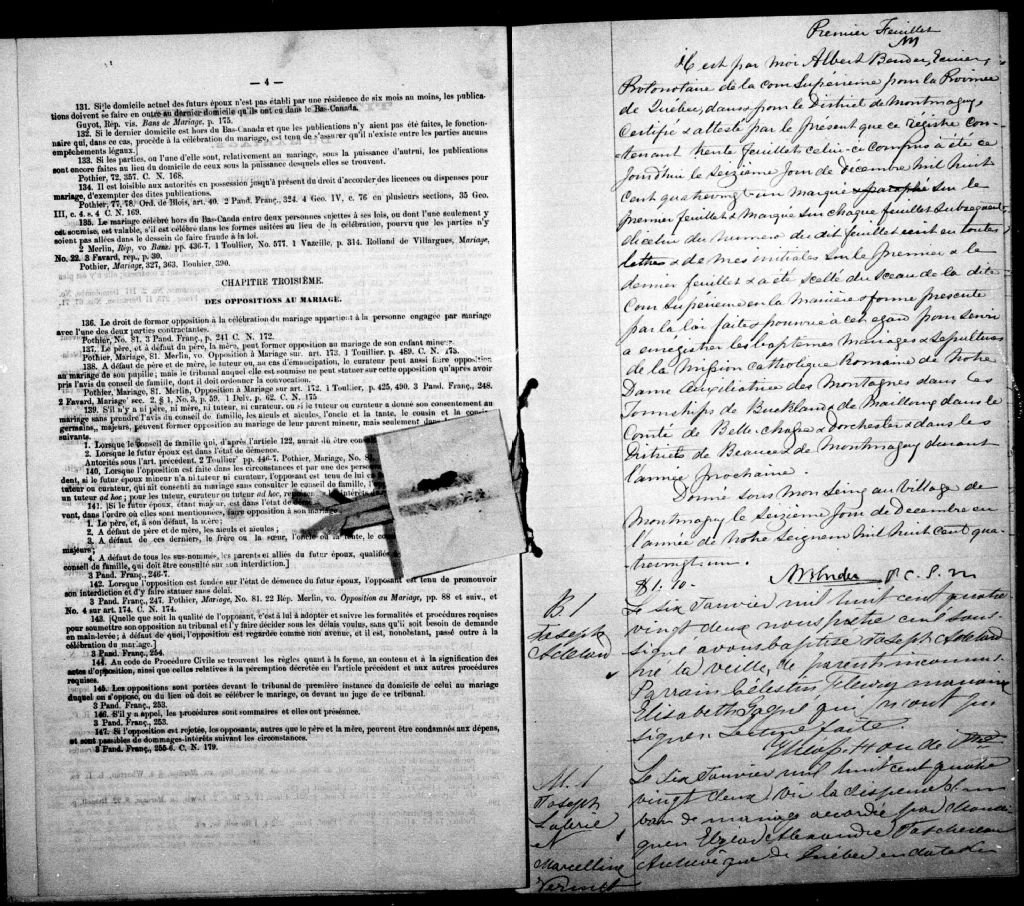 — 4 —
131. Si le domicile actuel des futurs époux n'est pas établi par une résidence de six mois au moins, les publica-
tions doivent se faire en outre au dernier domicile qu'ils ont eu dans le Bas-Canada.
Guyot, Rép. vis. Bans de Mariage, p. 175.
132. Si le dernier domicile est hors du Bas-Canada et que les publications n'y aient pas été faites, le fonction-
naire qui, dans ce cas, procède à la célébration du mariage, est tenu de s'assurer qu'il n'existe entre les parties aucuns
empêchements légaux.
133. Si les parties, ou l'une d'elle sont, relativement au mariage, sous la puissance d'autrui, les publications
sont encore faites au lieu du domicile de ceux sous la puissance desquels elles se trouvent.
Pothier, 72, 357. C. N. 168.
134. Il est loisible aux autorités en possession jusqu'à présent du droit d'accorder des licences ou dispenses pour
mariage, d'exempter des dites publications.
Pothier, 77, 78. Ord. de Blois, art. 40. 2 Pand. Franç., 324. 4 Geo. IV, c. 76 en plusieurs sections, 35 Geo.
III, c. 4. s. 4 C. N. 169.
135. Le mariage célébré hors du Bas-Canda entre deux personnes sujettes à ses lois, ou dont l'une seulement y
est soumise, est valable, s'il est célébré dans les formes usitées au lieu de la célébration, pourvu que les parties n'y
soient pas allées dans le dessein de faire fraude à la loi.
2 Merlin, Rép, vo Bans. pp. 436-7. 1 Toullier, No. 577. 1 Vazeille, p. 314. Rolland de Villargues, Mariage,
No. 22. 3 Favard, rep., p. 30.
Pothier, Mariage, 327, 363. Bouhier, 390.
CHAPITRE TROISIÈME.
DES OPPOSITIONS AU MARIAGE.
136. Le droit de former opposition à la célébration du mariage appartient à la personne engagée par mariage
avec l'une des deux parties contractantes.
Pothier, No. 81. 3 Pand. Franç., p. 241 C. N. 172.
137. Le père, et à défaut du père, la mère, peut former opposition au mariage de son enfant mineur.
Pothier, Mariage, 81. Merlin, vo. Opposition à Mariage sur. art. 173. 1 Toullier p. 489. C. N. 173.
138. A défaut de père et de mère, le tuteur et, au cas d'émancipation, le curateur peut aussi faire opposition
au mariage de son pupille; mais le tribunal auquel elle est soumise ne peut statuer sur cette opposition qu'après avoir
pris l'avis du conseil de famille, dont il doit ordonner la convocation.
Pothier, Mariage, 81. Merlin, Opposition à Mariage sur art. 172. 1 Toullier, p. 425, 490. 3 Pand. Franç., 248.
2 Favard, Mariage sec. 2. § 1, No. 3, p. 59. 1 Delv. p. 62. C. N. 175
139. S'il n'y a ni père, ni mère, ni tuteur, ni curateur, ou si le tuteur ou curateur a donné son consentement au
mariage sans prendre l'avis du conseil de famille, les aïeuls et aïeules, l'oncle et la tante, le cousin et la cousine
germains, majeurs, peuvent former opposition au mariage de leur parent mineur, mais seulement dans
suivants.
1. Lorsque le conseil de famille qui, d'après l'article 122, aurait dû être con
2. Lorsque le futur époux est dans l'état de démence.
Autorités sous l'art. précédent. 2 Toullier pp. 446-7. Pothier, Mariage, No. 81.
140. Lorsque l'opposition est faite dans les circonstances et par une des person
dent, si le futur époux mineur n'a ni tuteur ni curateur, l'opposant est tenu de lui en
tuteur ou curateur, qui ait consenti au mariage sans consulter le conseil de famille, l'
un tuteur ad hoc; pour les tuteur, curateur ou tuteur ad hoc, intérêts
141. [Si le futur époux, étant majeur, est dans l'état de dém
vent, dans l'ordre où elles sont mentionnées, faire opposition à son mariage
1. Le père, et, à son défaut, la mère;
2. A défaut de père et de mère, les aïeuls et aïeules;
3. A défaut de ces derniers, le frère ou la sœur, l'oncle ou la tante, le cou
majeurs;
4. A défaut de tous les sus-nommés, les parents et alliés du futur époux, qualifiés
conseil de famille, qui doit être consulté sur son interdiction.]
3 Pand. Franç., 246-7.
142. Lorsque l'opposition est fondée sur l'état de démence du futur époux, l'opposant est tenu de promouvoir
son interdiction et d'y faire statuer sans délai.
3 Pand. Franç., 247. Pothier, Mariage, No. 81. 22 Rép. Merlin, vo. Opposition au Mariage, pp. 88 et suiv., et
No. 4 sur art. 174. C. N. 174.
143. Quelle que soit la qualité de l'opposant, c'est à lui à adopter et suivre les formalités et procédures requises
pour soumettre son opposition au tribunal et l'y faire décider sous les délais voulus, sans qu'il soit besoin de demande
en main-levée; à défaut de quoi, l'opposition est regardée comme non avenue, et il est, nonobstant, passé outre à la
célébration du mariage.]
3 Pand. Franç., 254.
144. Au code de Procédure Civile se trouvent les règles quant à la forme, au contenu et à la signification des
actes d'opposition, ainsi que celles relatives à la péremption décrétée en l'article précédent et aux autres procédures
requises.
145. Les oppositions sont portées devant le tribunal de première instance du domicile de celui au mariage
duquel on s'oppose, ou du lieu où doit se célébrer le mariage, ou devant un juge de ce tribunal.
3 Pand. Franç., 253.
146. S'il y a appel, les procédures sont sommaires et elles ont préséance.
3 Pand. Franç., 253.
147. Si l'opposition est rejetée, les opposants, autres que le père et la mère, peuvent être condamnés aux dépens,
et sont passibles de dommages-intérêts suivant les circonstances.
3 Pand. Franç., 255-6. C. N. 179.
Premier Feuillet
Il est par moi Albert Bender, Ecuier,
Protonotaire de la cour Supérieure pour la Province
de Québec, dans & pour le District de Montmagny
Certifié & attesté par le présent que ce registre con-
tenant trente feuillets celui-ci compris a été ce
Jourd'hui le Seizième Jour de Décembre Mil huit
Cent quatrevingt-un Marqué & paraphé sur le
premier feuillet & Marqué sur chaque feuillet subséquent
du numéro du dit feuillet écrit en toutes
lettres & de mes initiales sur le premier & le
dernier feuillet & a été scellé du Sceau de la dite
Cour Supérieure en la Manière & forme prescrite
par la loi faite & pourvue à cet égard pour servir
à enrégistrer les baptêmes Mariages & Sépultures
de la Mission Catholique Romaine de Notre
Dame Auxiliatrice des Montagnes dans les
Townships de Buckland & de Mailloux dans le
Comté de Bellechasse & Dorchester & dans les
Districts de Beauce & de Montmagny durant
l'année prochaine.
Donné sous mon seing au Village de
Montmagny le Seizième Jour de Décembre en
l'année de Notre Seigneur Mil huit Cent qua-
trevingt un.
$1.90.
A Bender P. C. S. M
B 1
Joseph
Adelard
Le six Janvier mil huit cent quatre
vingt deux nous prêtre curé sous
signé avons baptisé Joseph Adelard
né la veille, de parents inconnus
Parrain Célestin Fleury marraine
Elisabeth qui n'ont pu
signer. Lecture faite
Houde Ptre
M. 1
Joseph
et
Marcelline
Le six Janvier mil huit cent quatre
vingt deux, vu la dispense d'un
ban de mariage accordée par Monsei
gneur Elzéar Alexandre Taschereau
Archevêque de Québec en date du